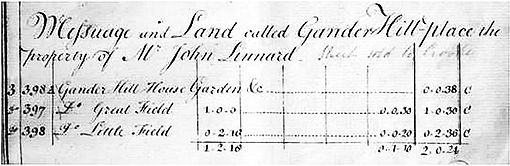 Messuage and Land called Gander Hill-place the
property of Mr John Linnard
3 398a Gander Hill House Garden &c 0..0..38 C
397 Do Great Field 1..0..0 0..0..30 1..0..30 C
398 Do Little Field 0..2..16 0..0..20 0..2..36 C
1..2..16 0..1..10 2..0..24